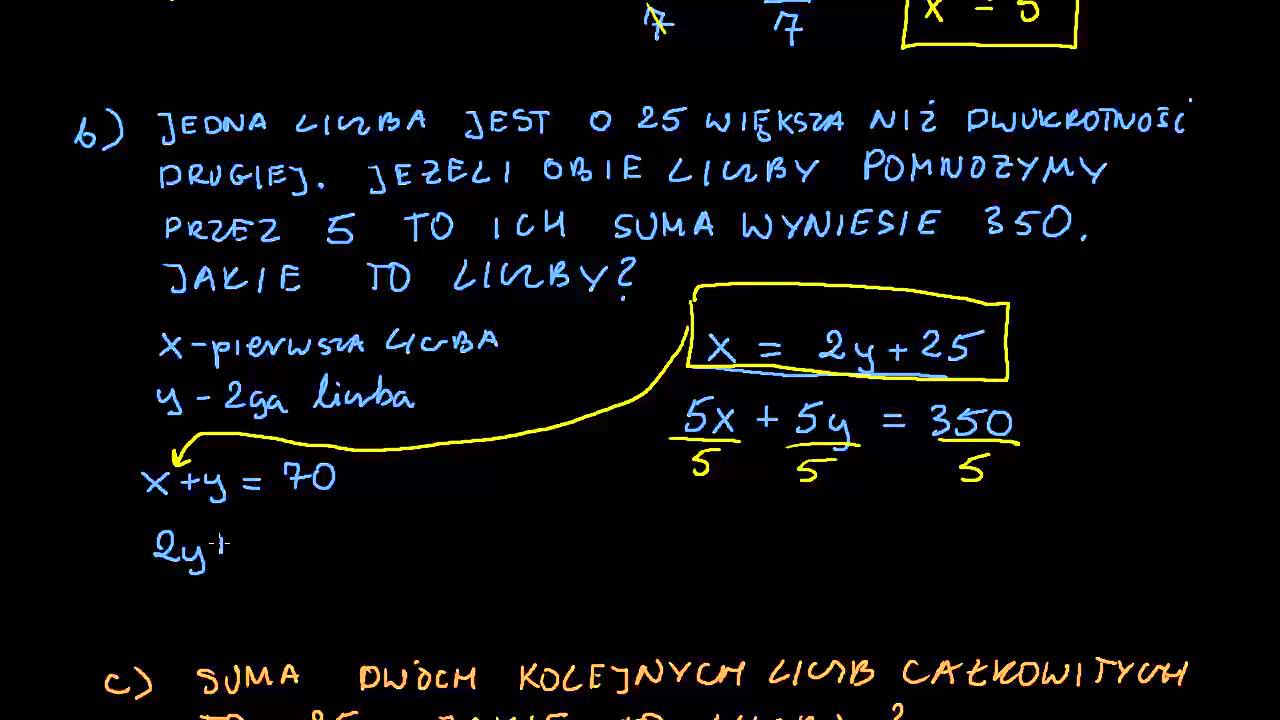 7 7 x = 5
b) JEDNA LICZBA JEST O 25 WIĘKSZA NIŻ DWUKROTNOŚĆ
DRUGIEJ. JEŻELI OBIE LICZBY POMNOŻYMY
PRZEZ 5 TO ICH SUMA WYNIESIE 350.
JAKIE TO LICZBY?
x - pierwsza LICZBA
x = 2y + 25
y - 2ga liczba
5x + 5y = 350
5 5 5
x + y = 70
2y +
c) SUMA DWÓCH KOLEJNYCH LICZB CAŁKOWITYCH